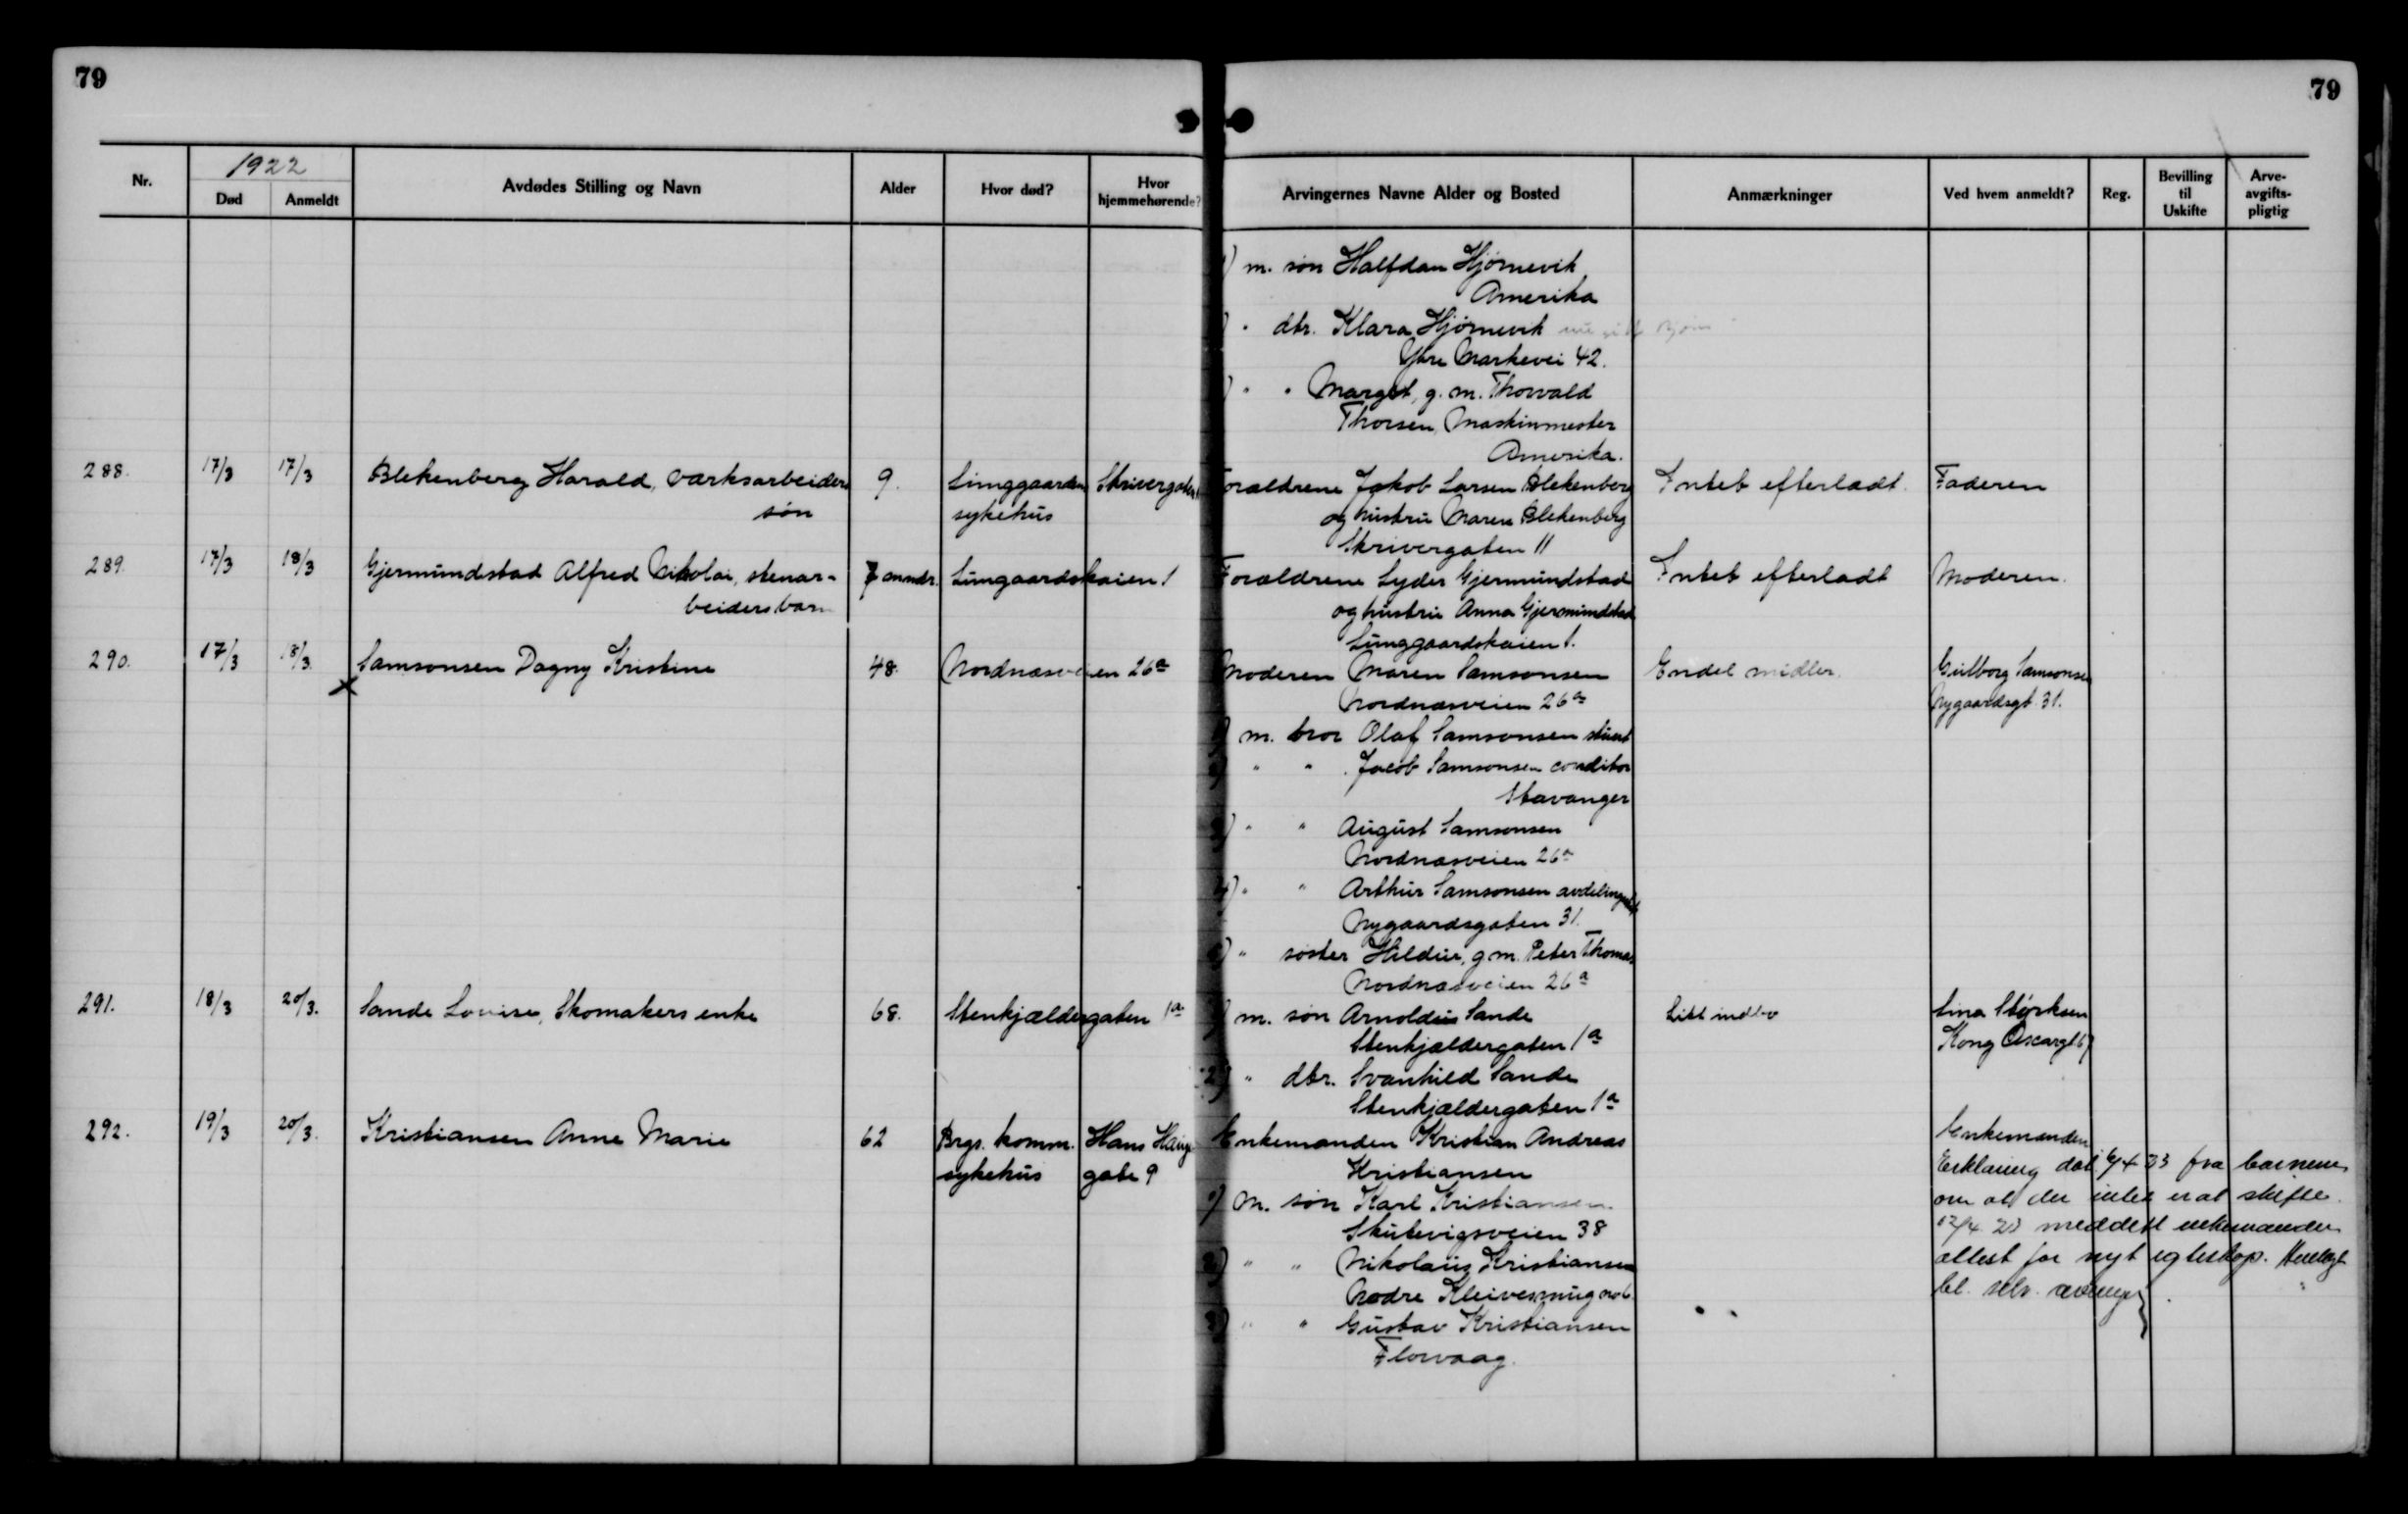 79
79
Nr.
1922
Død
Anmeldt
Avdødes Stilling og Navn
Alder
Hvor død?
Hvor hjemmehørende?
Arvingernes Navne Alder og Bosted
Anmærkninger
Ved hvem anmeldt?
Reg.
Bevilling til Uskifte
Arve-avgifts-pligtig
m. søn Halfdan Hjørnevik
Amerika
" dtr. Klara Hjørnevik
Ytre Markevei 42.
" " Margit, g. m. Thorvald
Thorsen, Maskinmester
Amerika.
288. 17/3 17/3 Blekenberg Harald, værksarbeiders 9. Lunggaarden Skrivergaten Forældrene Jakob Larsen Blekenberg Intet efterladt. Faderen
søn sykehus og hustru Maren Blekenberg
Skrivergaten 11
289. 17/3 18/3 Gjermundstad Alfred Nikolai, stenar- 7 anmdr. Lungaardskaien 1 Forældrene Lyder Gjermundstad Intet efterladt Moderen.
beidersbarn og hustru Anna Gjermundstad
Lunggaardskaien 1.
290. 17/3 18/3 Samsonsen Dagny Kristine 48. Nordnæsveien 26a Moderen Maren Samsonsen Endel midler. Gulborg Samsonsen
x Nordnæsveien 26a Nygaardsgt. 31.
1) m. bror Olaf Samsonsen stuert
2) " " Jacob Samsonsen conditor
Stavanger
3) " " August Samsonsen
Nordnæsveien 26a
4) " " Arthur Samsonsen
Nygaardsgaten 31.
5) " søster Hildur, g. m. Peter Thomas
Nordnæsveien 26a
291. 18/3 20/3. Sande Lovise, Skomakers enke 68. Stenkjældergaten 1a 1) m. søn Arnoldus Sande Litt indbo Lina Størksen
Stenkjældergaten 1a Kong Oscargt. 67
2) " dtr. Svanhild Sande
Stenkjældergaten 1a
292. 19/3 20/3. Kristiansen Anne Marie 62 Brgs. komm. Hans Haugs Enkemanden Kristian Andreas Enkemanden
sykehus gate 9 Kristiansen Erklæring dat. 6/4 23 fra barnene
1) m. søn Karl Kristiansen. om at der intet er at skifte.
Skutevigsveien 38 12/4 23 meddelt enkemanden
2) " " Nikolaus Kristiansen attest for nyt egteskap.
Nedre Kleivesmug no 6.
3) " " Gustav Kristiansen
Florvaag.